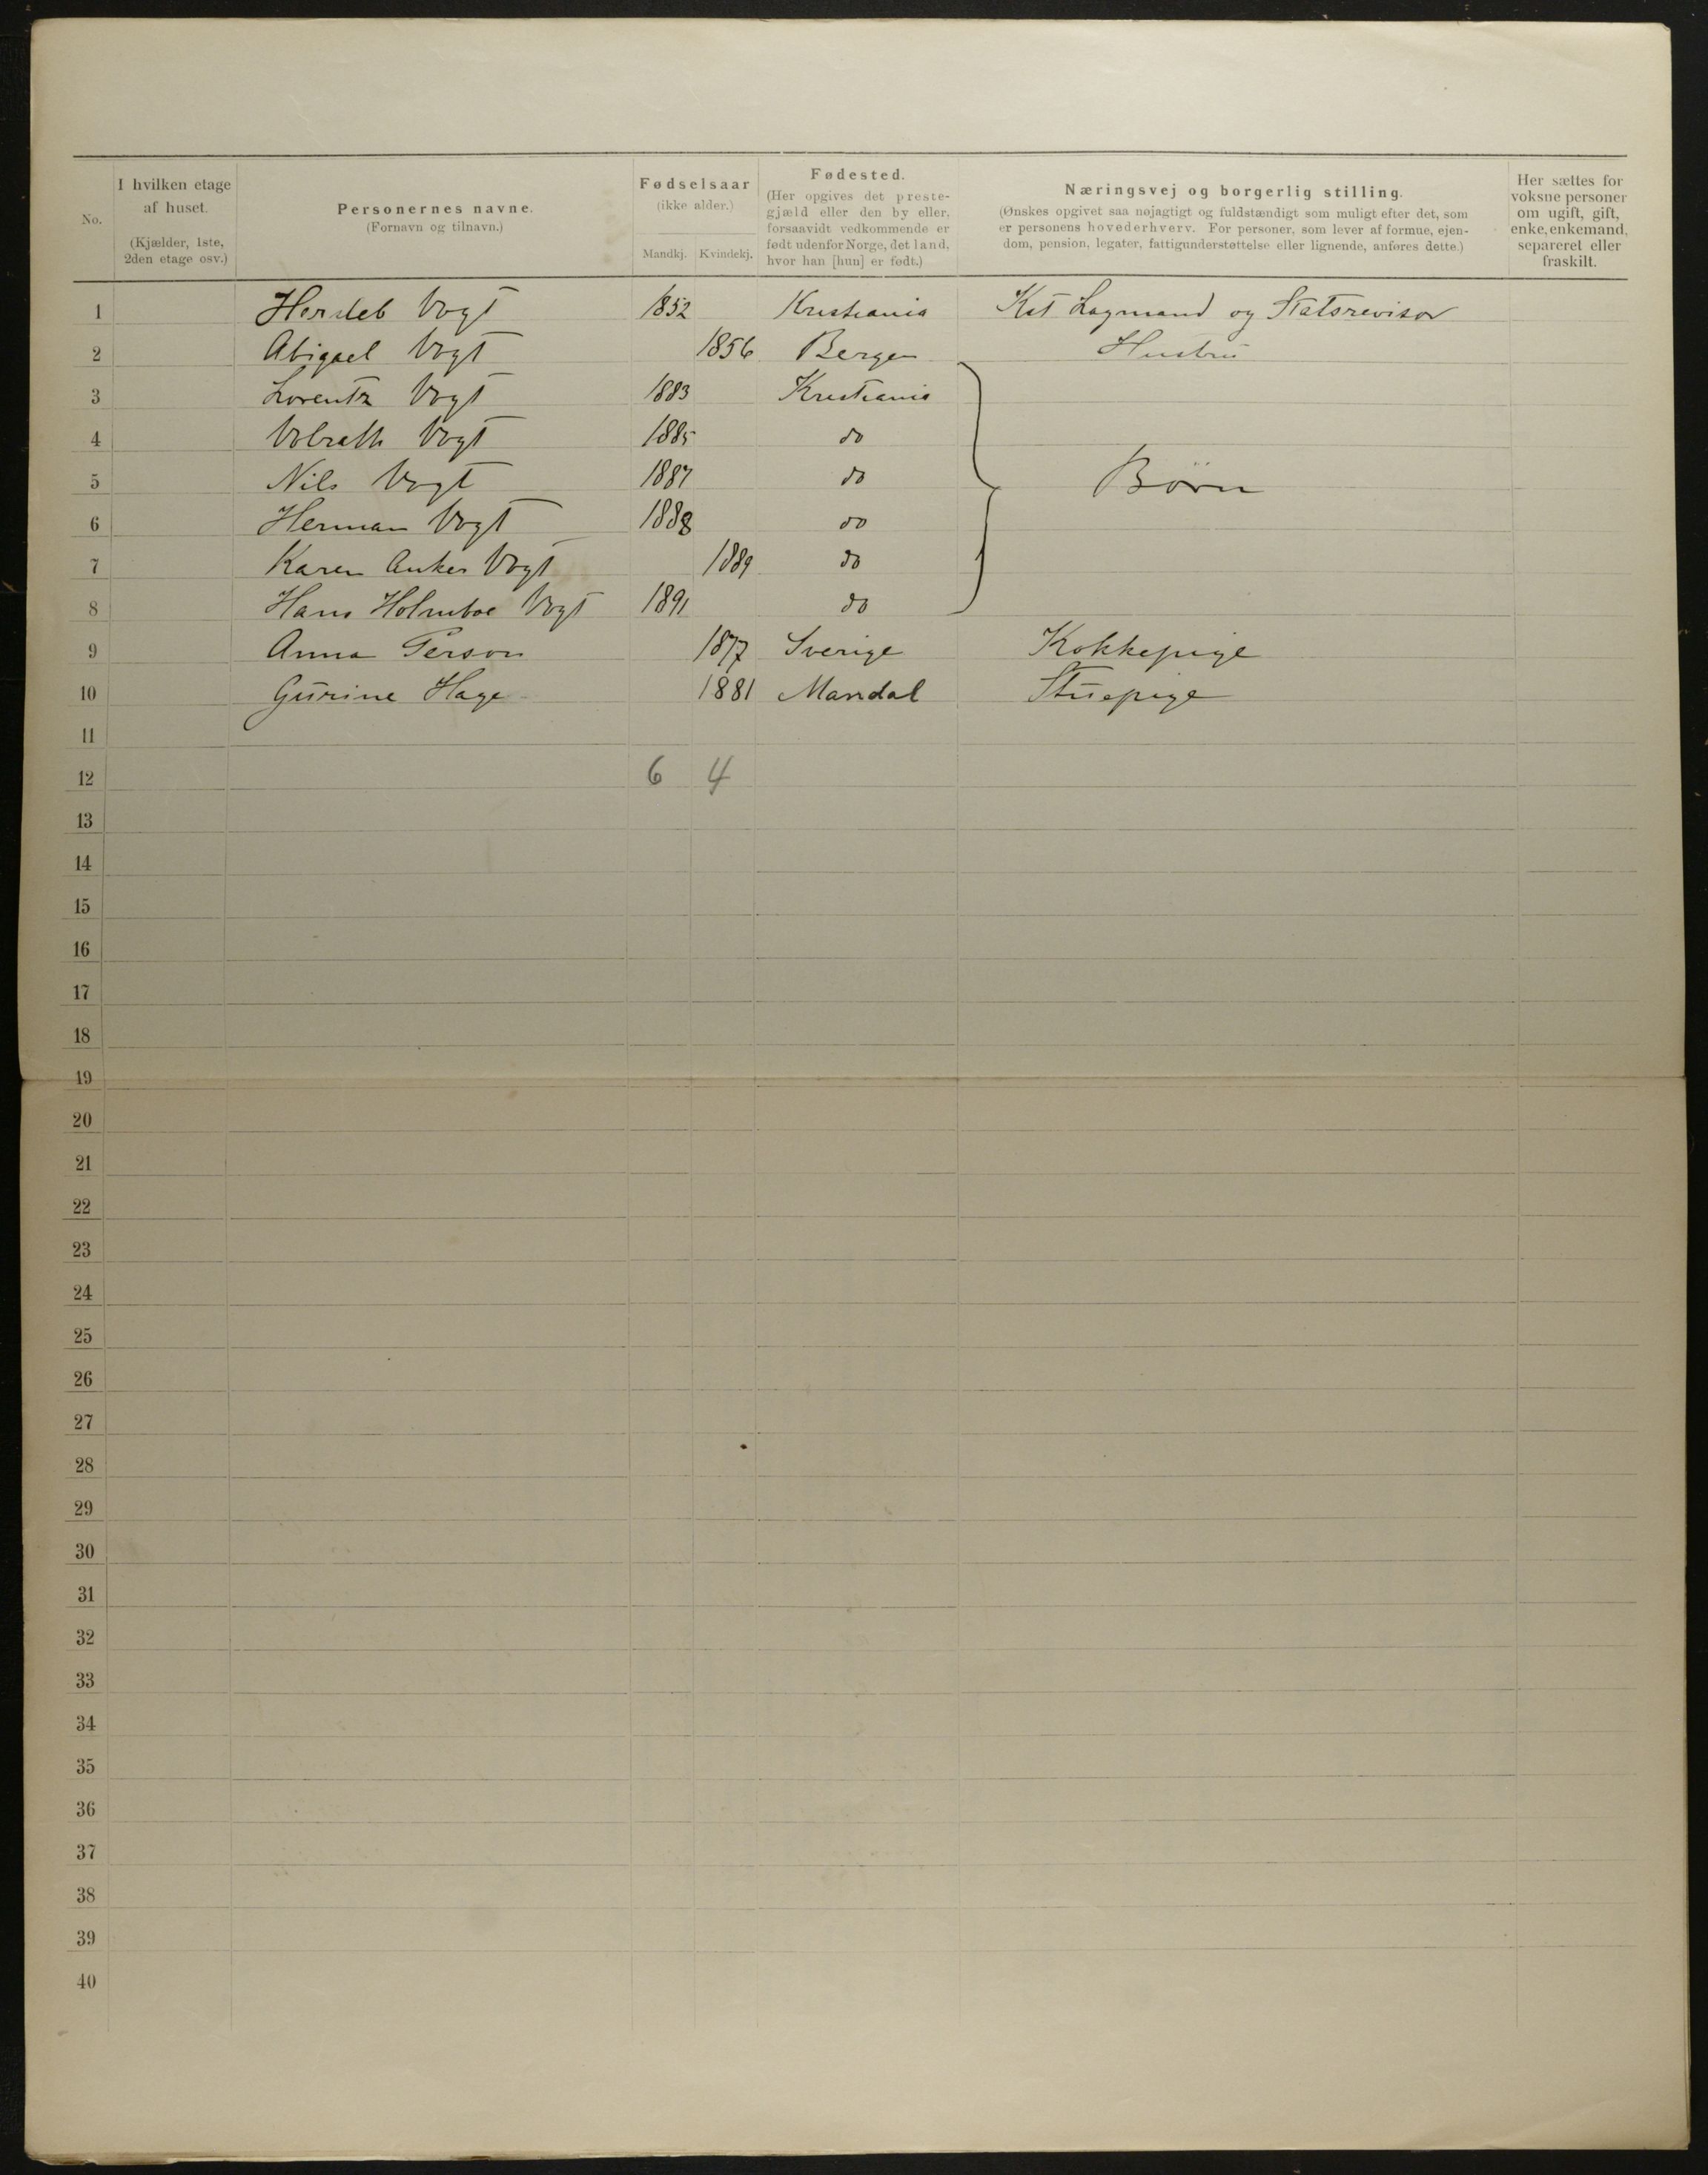 No.
I hvilken etage af huset. (Kjælder, 1ste, 2den etage osv.)
Personernes navne. (Fornavn og tilnavn.)
Fødselsaar (ikke alder.)
Mandkj. Kvindekj.
Fødested. (Her opgives det prestegjæld eller den by eller, forsaavidt vedkommende er født udenfor Norge, det land, hvor han [hun] er født.)
Næringsvej og borgerlig stilling. (Ønskes opgivet saa nøjagtigt og fuldstændigt som muligt efter det, som er personens hovederhverv. For personer, som lever af formue, ejendom, pension, legater, fattigunderstøttelse eller lignende, anføres dette.)
Her sættes for voksne personer om ugift, gift, enke, enkemand, separeret eller fraskilt.
1 Hersleb Vogt 1852 Kristiania Kst Lagmand og Statsrevisor
2 Abigael Vogt 1856 Bergen Hustru
3 Lorentz Vogt 1883 Kristiania
4 Volrath Vogt 1885 do
5 Nils Vogt 1887 do Börn
6 Herman Vogt 1888 do
7 Karen Anker Vogt 1889 do
8 Hans Holmboe Vogt 1891 do
9 Anna Person 1877 Sverige Kokkepige
10 Gurine Hage 1881 Mandal Stuepige
11
12 6 4
13
14
15
16
17
18
19
20
21
22
23
24
25
26
27
28
29
30
31
32
33
34
35
36
37
38
39
40